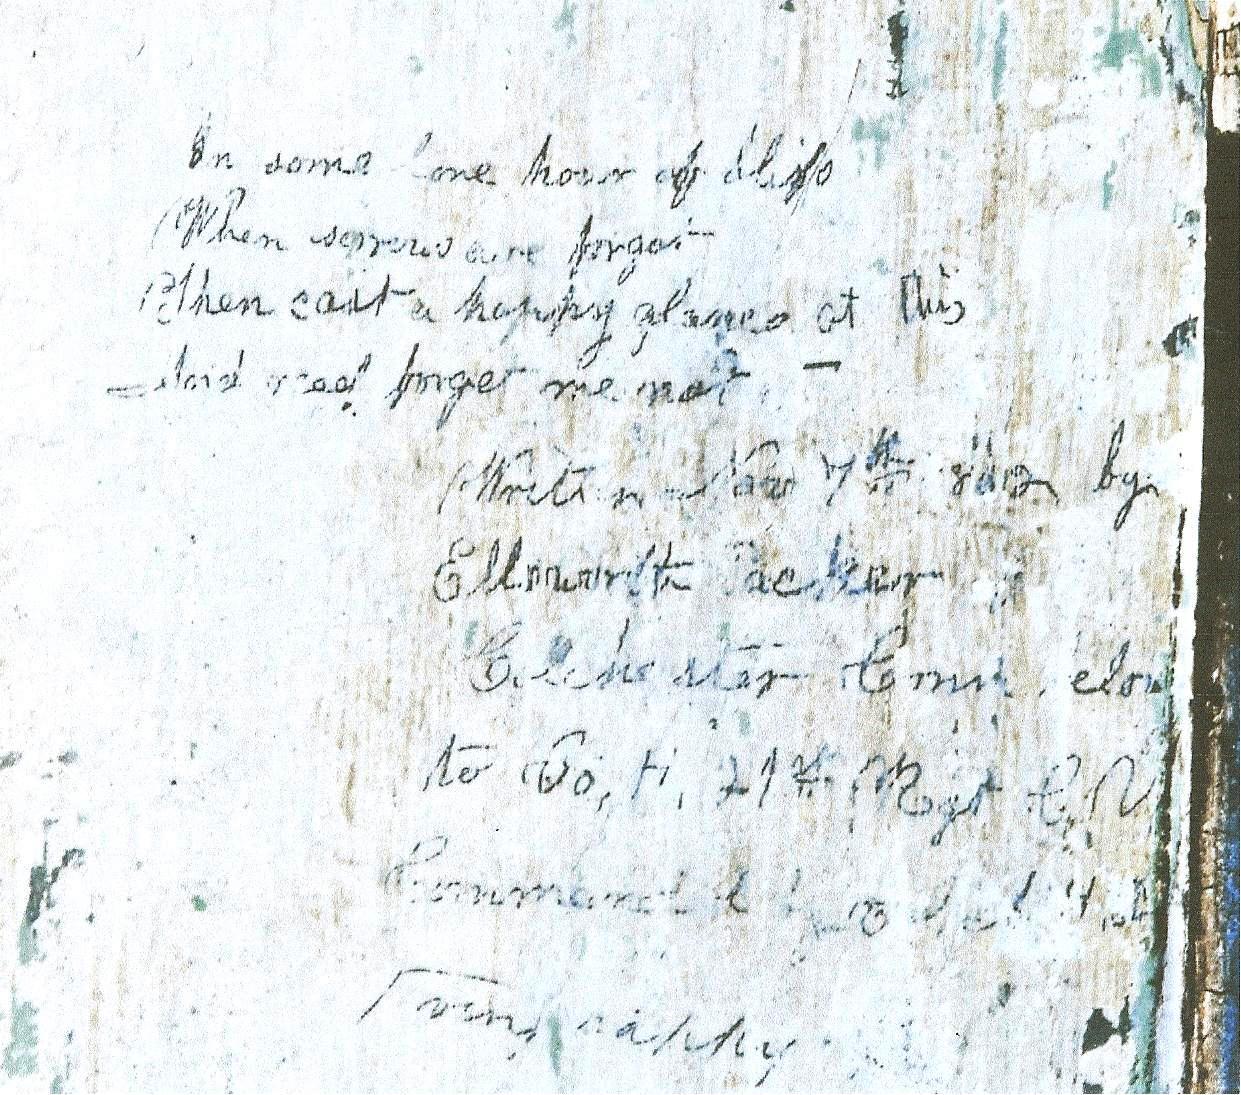 In some lone hour of bliss
When sorrows are forgot
Then cast a happy glance at this
And read forget me not
Written Nov 7th 1862 by
Ellsworth Packer
Colchester Conn belon
to Co, H, 21st Regt C, V,
Commanded by